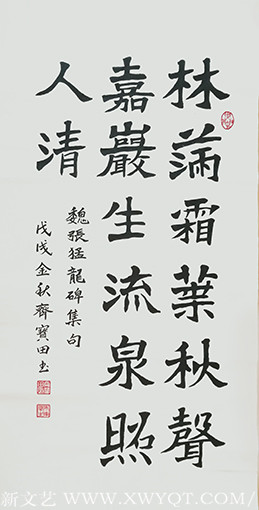 林荫霜葉秋聲
嘉巖生流泉照
人清
魏張猛龍碑集句
戊戌金秋齊寶田书
新文艺 WWW.XWYQT.COM